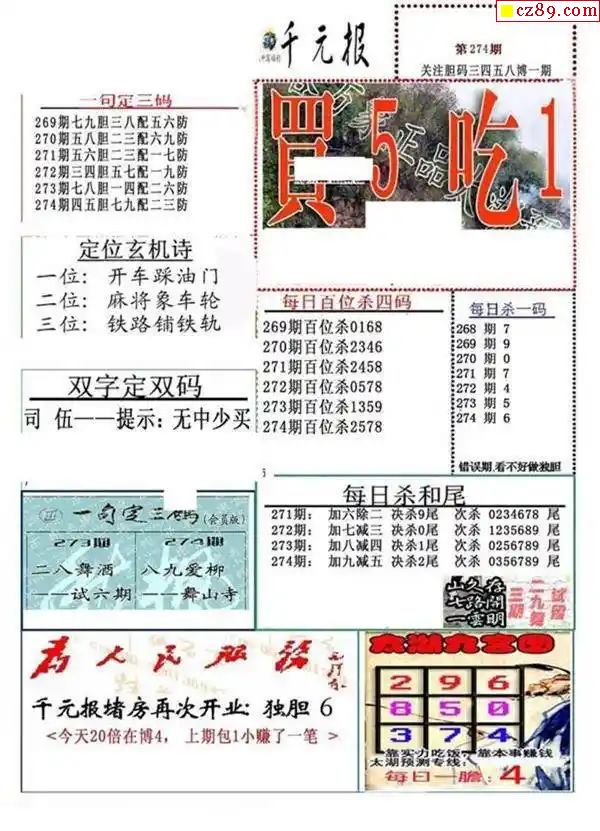 cz89.com
千元报
第274期
关注胆码三四五八博一期
一句定三码
269期七九胆三八配五六防
270期五八胆二三配六九防
271期五六胆二三配一七防
272期三四胆五七配一九防
273期七八胆一四配二六防
274期四五胆七九配二三防
買 5 吃 1
定位玄机诗
一位: 开车踩油门
二位: 麻将象车轮
三位: 铁路铺铁轨
每日百位杀四码
269期百位杀0168
270期百位杀2346
271期百位杀2458
272期百位杀0578
273期百位杀1359
274期百位杀2578
每日杀一码
268 期 7
269 期 9
270 期 0
271 期 7
272 期 4
273 期 5
274 期 6
错误期,看不好做独胆
双字定双码
司 伍——提示: 无中少买
一句定三码(会员版)
273期
二八舞酒
——试六期
274期
八九爱柳
——舞山寺
每日杀和尾
271期: 加六除二 决杀9尾 次杀 0234678 尾
272期: 加七减三 决杀0尾 次杀 1235689 尾
273期: 加八减四 决杀1尾 次杀 0256789 尾
274期: 加九减五 决杀2尾 次杀 0356789 尾
山久存
七路闹
一雲明
二九舞
三期
试段
为人民服务
千元报堵房再次开业: 独胆 6
<今天20倍在博4, 上期包1小赚了一笔 >
太湖九宫图
2 9 6
8 5 0
3 7 4
靠实力吃饭, 靠本事赚钱
太湖预测专线:
每日一胆: 4